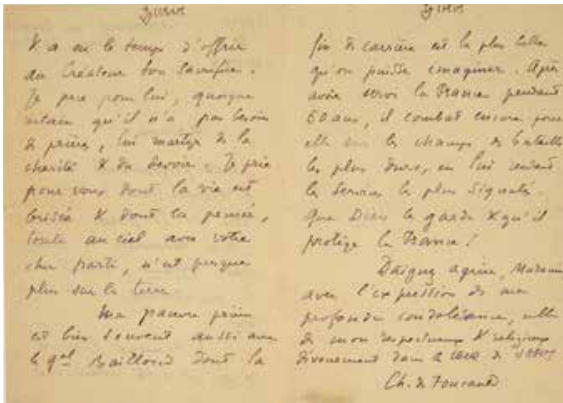 & a eu le temps d'offrir
au Créateur son sacrifice.
Je prie pour lui, quoique
certain qu'il n'a pas besoin
de prières, lui martyr de la
charité & du devoir. Je prie
pour vous dont la vie est
brisée & dont la pensée,
toute au ciel avec votre
cher parti, n'est presque
plus sur la terre.
Ma pauvre prière
est bien souvent aussi avec
le gal Bailloud dont la
fin de carrière est la plus belle
qu'on puisse imaginer. Après
avoir servi la France pendant
50 ans, il combat encore pour
elle sur les champs de bataille
les plus durs, en lui rendant
les services les plus signalés.
Que Dieu le garde & qu'il
protège la France!
Daignez agréer, Madame
avec l'expression de ma
profonde condoléance, celle
de mon respectueux & religieux
dévouement dans le de JESUS
Ch. de Foucauld